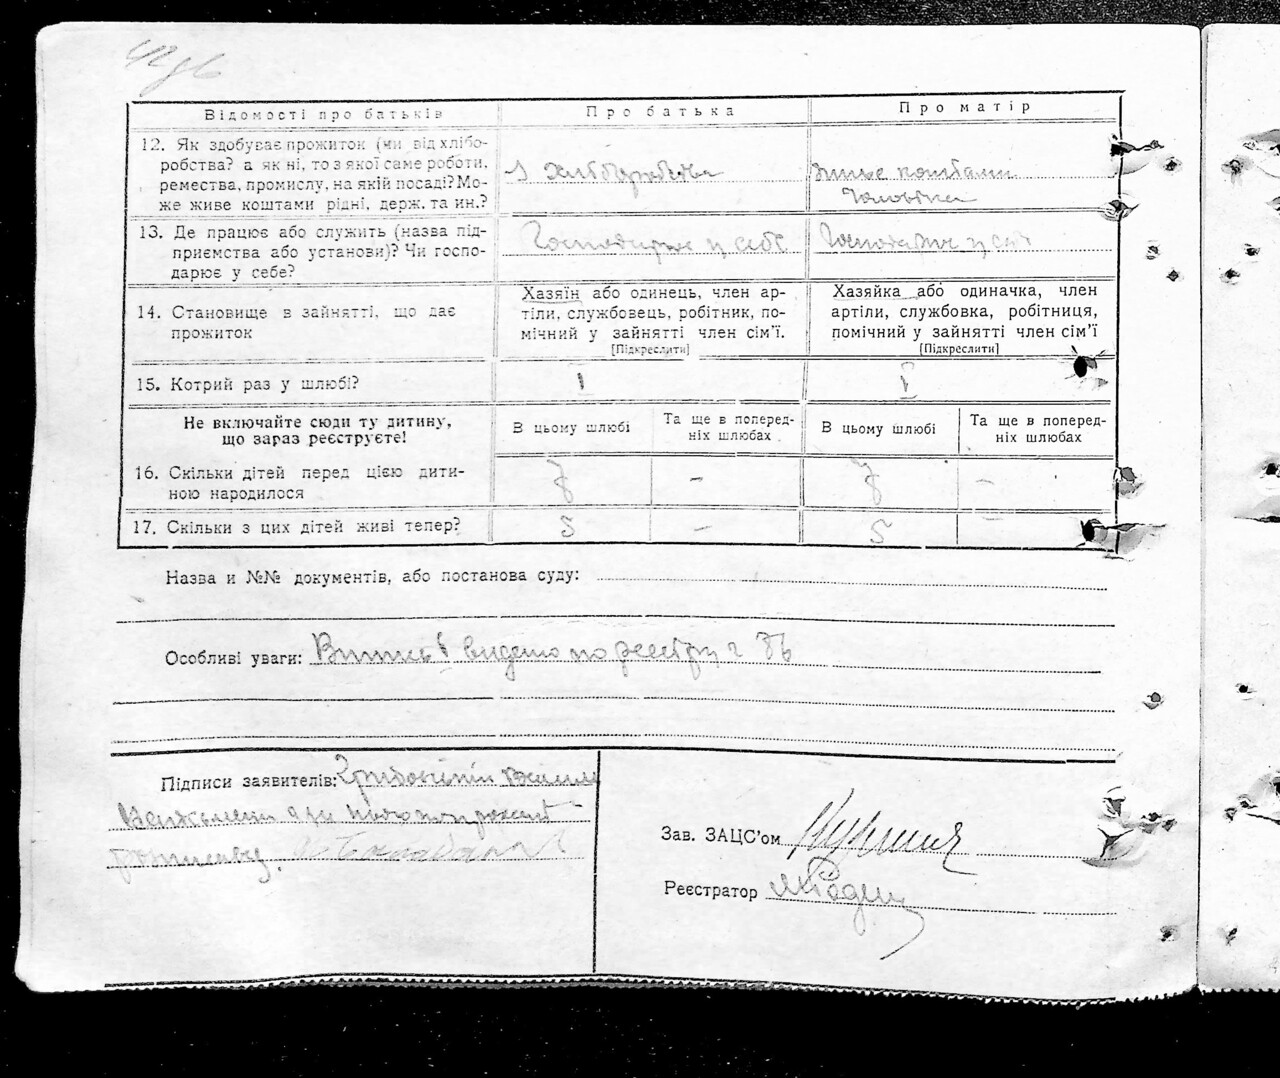 Відомості про батьків
Про батька
Про матір
12. Як здобуває прожиток (чи від хлібо-
робства? а як ні, то з якої саме роботи,
ремества, промислу, на якій посаді? Мо-
же живе коштами рідні, держ. та ин.?
з хліборобства
живе коштами
чоловіка
13. Де працює або служить (назва під-
приємства або установи)? Чи госпо-
дарює у себе?
Господарює у себе
Господарює у себе
14. Становище в зайнятті, що дає
прожиток
Хазяїн або одинець, член ар-
тіли, службовець, робітник, по-
мічний у зайнятті член сім'ї.
[Підкреслити]
Хазяйка або одиначка, член
артіли, службовка, робітниця,
помічний у зайнятті член сім'ї
[Підкреслити]
15. Котрий раз у шлюбі?
I
I
Не включайте сюди ту дитину,
що зараз реєструєте!
В цьому шлюбі
Та ще в поперед-
ніх шлюбах
В цьому шлюбі
Та ще в поперед-
ніх шлюбах
16. Скільки дітей перед цією дити-
ною народилося
7
–
7
–
17. Скільки з цих дітей живі тепер?
5
–
5
–
Назва и №№ документів, або постанова суду:
Особливі уваги: видано по реестру
Підписи заявителів:
Зав. ЗАЦС'ом
Реєстратор